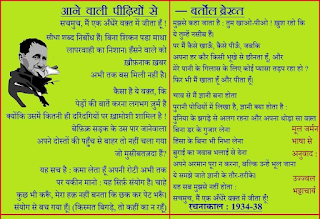 आने वाली पीढ़ियों से
— बर्तोल ब्रेख्त
सचमुच, मैं एक अँधेरे वक़्त में जीता हूँ !
सीधा शब्द निर्बोध है। बिना शिकन पड़ा माथा
लापरवाही का निशान। हँसने वाले को
ख़ौफ़नाक ख़बर
अभी तक बस मिली नहीं है।
कैसा है ये वक़्त, कि
पेड़ों की बातें करना लगभग जुर्म है
क्योंकि उसमें कितनी ही दरिंदगियों पर ख़ामोशी शामिल है !
बेफ़िक्र सड़क के उस पार जानेवाला
अपने दोस्तों की पहुँच से बाहर तो नहीं चला गया
जो मुसीबतज़दा हैं?
यह सच है : कमा लेता हूँ अपनी रोटी अभी तक
पर यक़ीन मानो : यह सिर्फ़ संयोग है। चाहे
कुछ भी करूँ, मेरा हक़ नहीं बनता कि छक कर पेट भरूँ।
संयोग से बच गया हूँ। (किस्मत बिगड़े, तो कहीं का न रहूँ)
मुझसे कहा जाता है : तुम खाओ-पीओ ! ख़ुश रहो कि
ये तुम्हें नसीब हैं।
पर मैं कैसे खाऊँ, कैसे पीऊँ, जबकि
अपना हर कौर किसी भूखे से छीनता हूँ, और
मेरे पानी के गिलास के लिए कोई प्यासा तड़प रहा हो ?
फिर भी मैं खाता हूँ और पीता हूँ।
चाव से मैं ज्ञानी बना होता
पुरानी पोथियों में लिखा है, ज्ञानी क्या होता है :
दुनिया के झगड़े से अलग रहना और अपना थोड़ा सा वक़्त
बिना डर के गुज़ार लेना
हिंसा के बिना भी निभा लेना
बुराई का जवाब भलाई से देना
अपने अरमान पूरा न करना, बल्कि उन्हें भूल जाना
ये समझे जाते ज्ञानी के तौर-तरीके।
यह सब मुझसे नहीं होता :
सचमुच, मैं एक अँधेरे वक़्त में जीता हूँ !
मूल जर्मन
भाषा से
अनुवाद :
उज्ज्वल
भट्टाचार्य
रचनाकाल : 1934-38